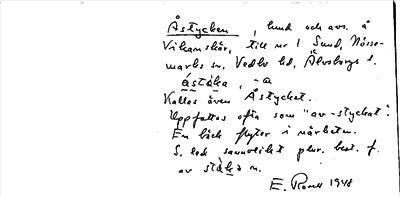 Åstycken, lund och avs. å
Vikarskär, till nr 1 Sund, Nösse-
marks sn. Vedbo hd, Älvsborgs l.
ástáka, -a
Kallas även Åstycket.
Uppfattas ofta som "av-stycket".
En bäck flyter i närheten.
S. led sannolikt plur. best. f.
av stáka n.
E. Rosell 1948